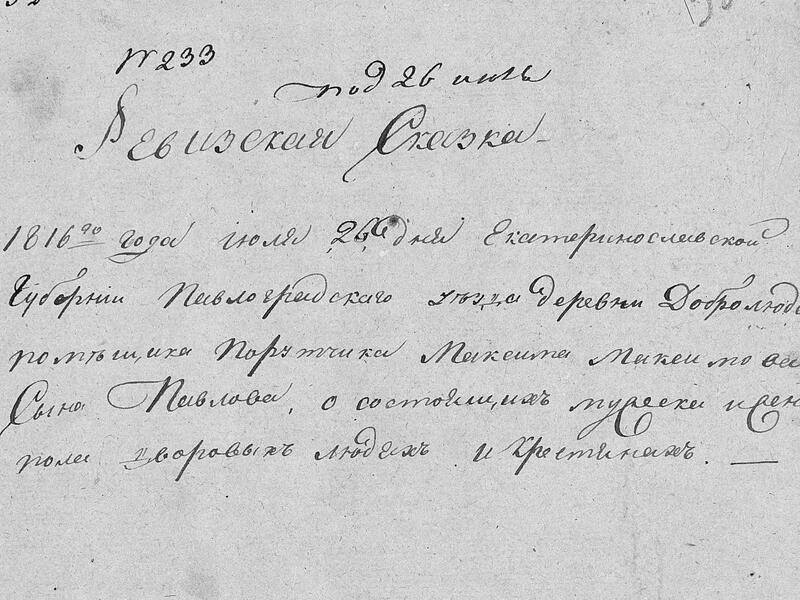 № 233
под 26 июль
Ревизская Сказка
1816го года июля 26го дня Екатеринославской
Губернии Павлоградскаго уезда деревни Добролюб
помѣщика Порутчика Максима Максимова
Сына Павлова, о состоящихъ мужеска и жен
пола дворовыхъ людяхъ и крестьянахъ.